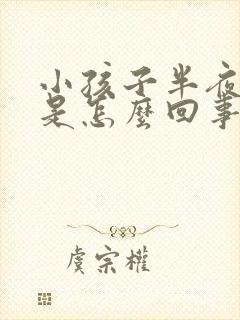 小孩子半夜
是怎麼回事
虞宗權